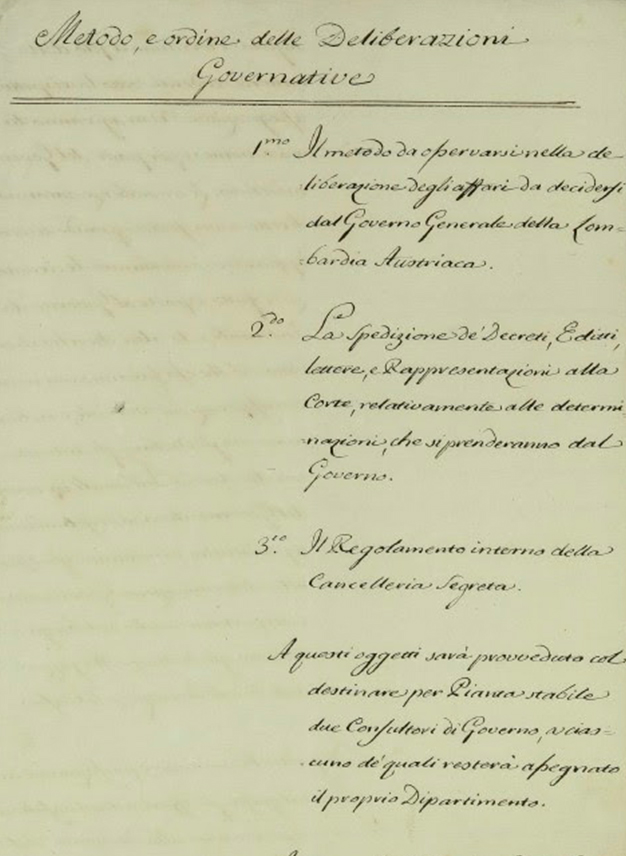 Metodo, e ordine delle Deliberazioni
Governative
1.mo Il metodo da osservarsi nella de
liberazione degli affari da decidersi
dal Governo Generale della Lom=
=bardia Austriaca.
2.do La Spedizione de' Decreti, Editti,
lettere, e Rappresentazioni alla
Corte, relativamente alle determi
=nazioni, che si prenderanno dal
Governo.
3.zo Il Regolamento interno della
Cancelleria Segreta.
A questi oggetti sarà provveduto col
destinare per Pianta stabile
due Consultori di Governo, a cias=
=cuno de' quali resterà assegnato
il proprio Dipartimento.